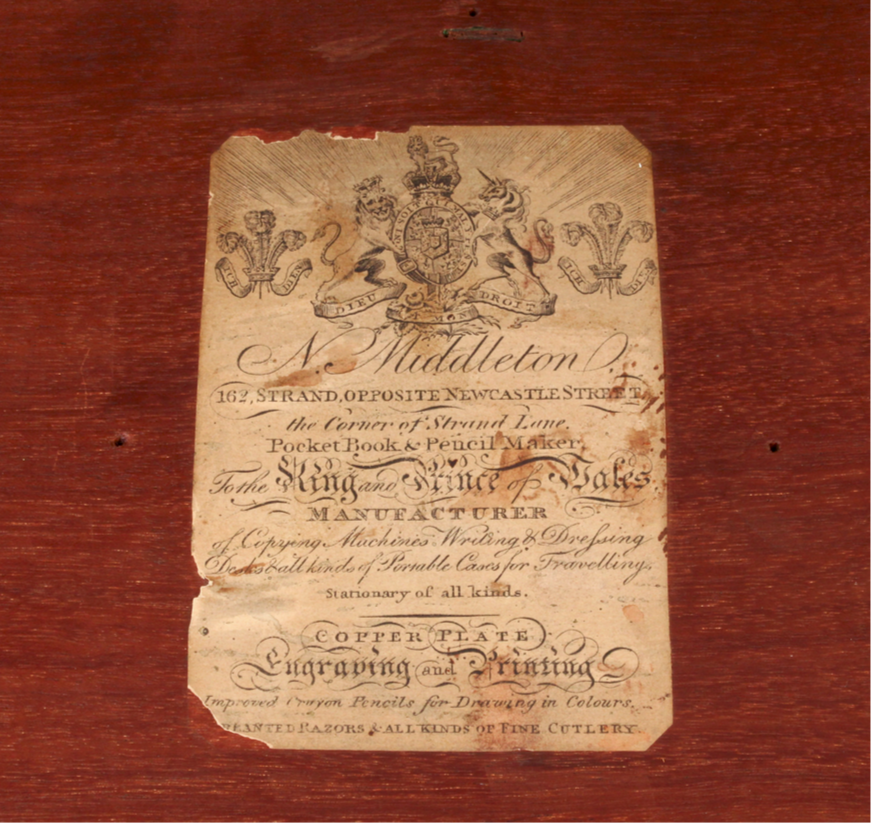 ICH DIEN
HONI SOIT QUI MAL Y PENSE
DIEU ET MON DROIT
ICH DIEN
N. Middleton
162, STRAND, OPPOSITE NEWCASTLE STREET,
the Corner of Strand Lane.
Pocket Book & Pencil Maker,
To the King and Prince of Wales.
MANUFACTURER
of Copying Machines Writing & Dreſsing
Desks & all kinds of Portable Cases for Travelling.
Stationary of all kinds.
COPPER PLATE
Engraving and Printing
Improved Crayon Pencils for Drawing in Colours.
RANTED RAZORS & ALL KINDS OF FINE CUTLERY.